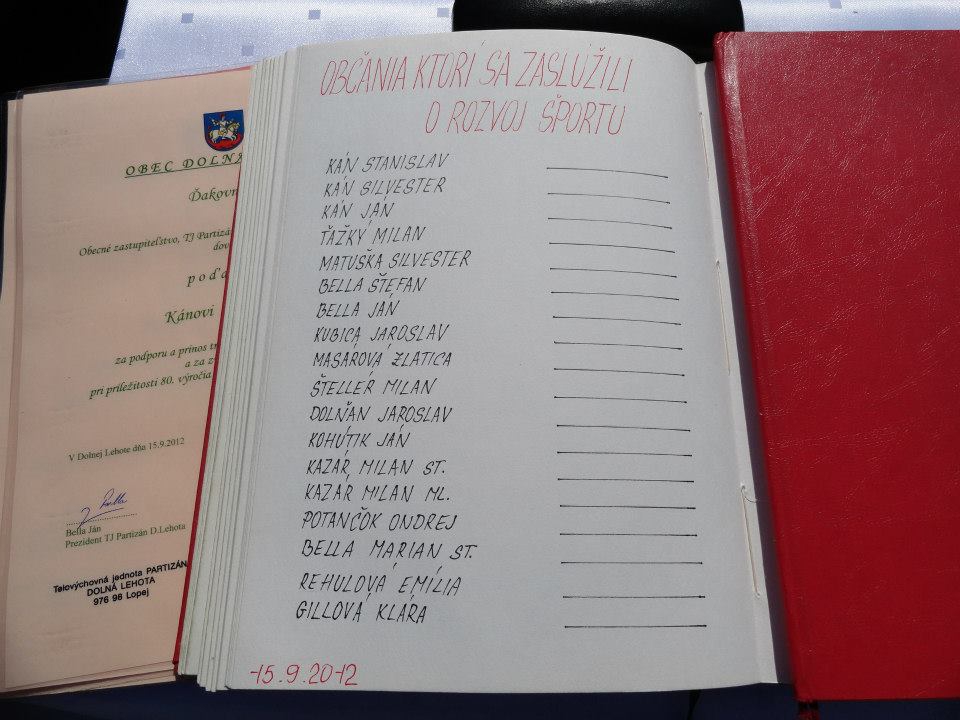 OBEC DOLNÁ
Ďakovn
Obecné zastupiteľstvo, TJ Partizá
dov
poďa
Kánovi
za podporu a prínos tr
a za z
pri príležitosti 80. výročia
V Dolnej Lehote dňa 15.9.2012
Bella Ján
Prezident TJ Partizán D.Lehota
Telovýchovná jednota PARTIZÁN
DOLNÁ LEHOTA
976 98 Lopej
OBČANIA KTORÍ SA ZASLÚŽILI
O ROZVOJ ŠPORTU
KÁN STANISLAV
KÁN SILVESTER
KÁN JÁN
ŤAŽKÝ MILAN
MATUŠKA SILVESTER
BELLA ŠTEFAN
BELLA JÁN
KUBICA JAROSLAV
MASAROVÁ ZLATICA
ŠTELLER MILAN
DOLŇAN JAROSLAV
KOHÚTIK JÁN
KAZÁR MILAN ST.
KAZÁR MILAN ML.
POTANČOK ONDREJ
BELLA MARIAN ST.
REHULOVÁ EMÍLIA
GILLOVÁ KLÁRA
15.9.2012